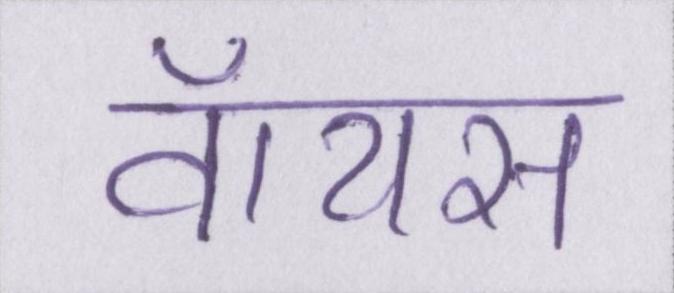 वॉयस